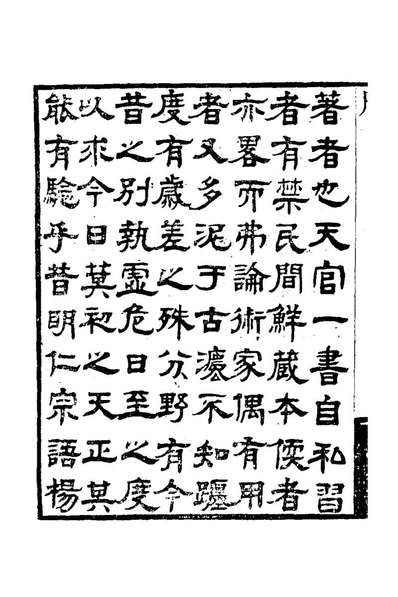 著者也天官一書自私習
者有禁民間鮮蔵本儒者
亦畧而弗論術家偶有用
者又多泥于古灋不知躔
度有歲差之殊分野有今
昔之別執虛危日至之度
以求今日莫初之天正其
能有驗乎昔明仁宗語楊